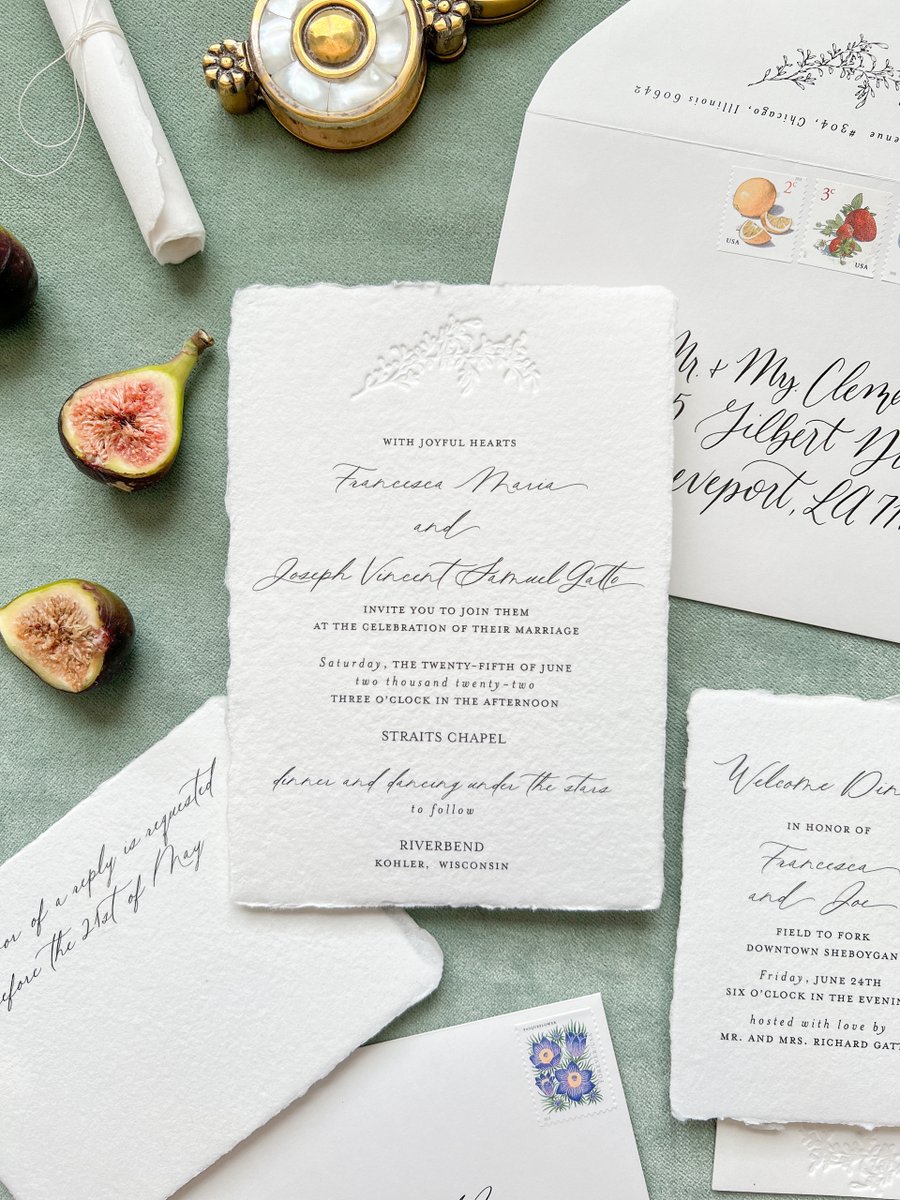 WITH JOYFUL HEARTS
Francesca Maria
and
Joseph Vincent Samuel Gatto
INVITE YOU TO JOIN THEM
AT THE CELEBRATION OF THEIR MARRIAGE
Saturday, THE TWENTY-FIFTH OF JUNE
two thousand twenty-two
THREE O'CLOCK IN THE AFTERNOON
STRAITS CHAPEL
dinner and dancing under the stars
to follow
RIVERBEND
KOHLER, WISCONSIN
#304, Chicago, Illinois 60642
2c
USA
3c
USA
Mr. + My.
Gilbert
LA
of a reply is requested
the 21st of May
PASQUEFLOWER
Welcome
IN HONOR OF
Francesca
and Joe
FIELD TO FORK
DOWNTOWN SHEBOYGAN
Friday, JUNE 24TH
SIX O'CLOCK IN THE
hosted with love by
MR. AND MRS. RICHARD